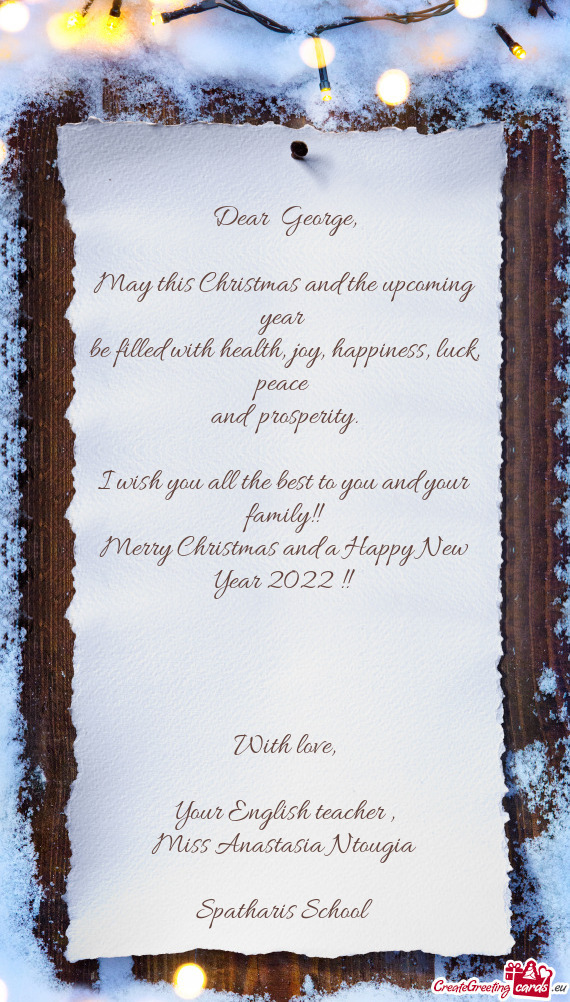 Dear George,
May this Christmas and the upcoming
year
be filled with health, joy, happiness, luck,
peace
and prosperity.
I wish you all the best to you and your
family!!
Merry Christmas and a Happy New
Year 2022 !!
With love,
Your English teacher ,
Miss Anastasia Ntougia
Spatharis School
CreateGreetingcards.eu